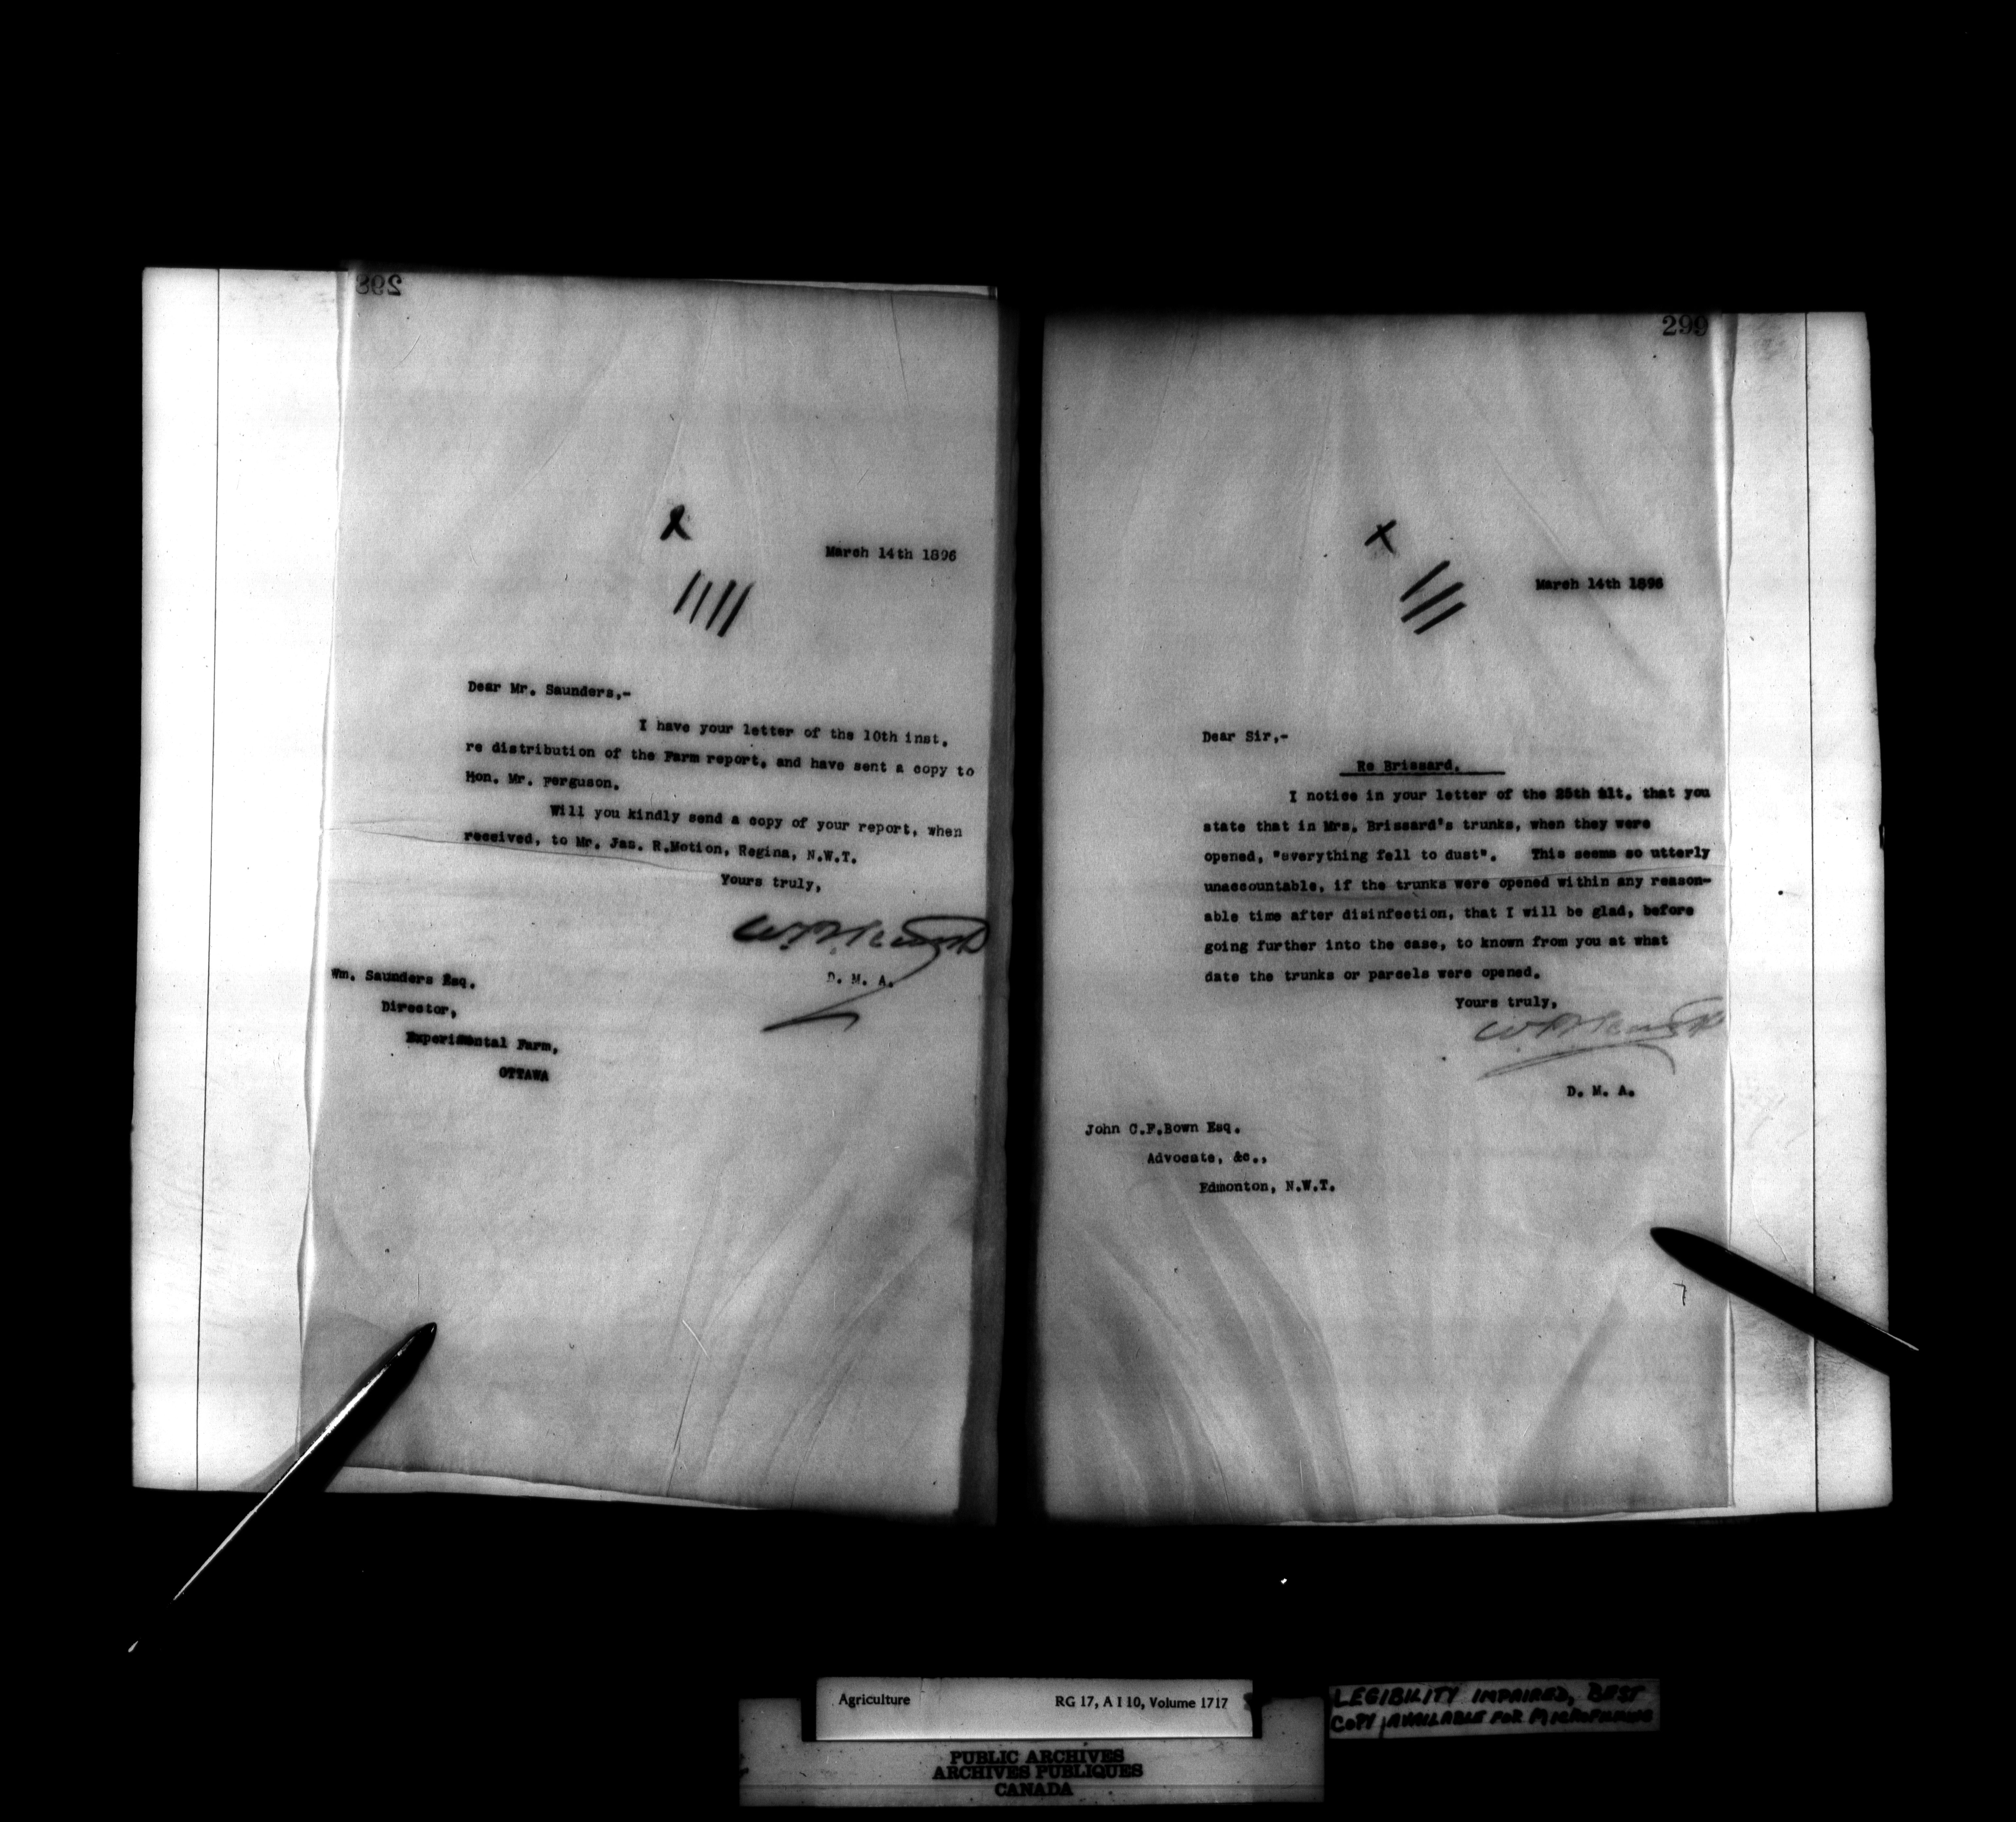 298
March 14th 1896
Dear Mr. Saunders,-
I have your letter of the 10th inst.
re distribution of the Farm report, and have sent a copy to
Hon. Mr. Ferguson.
Will you kindly send a copy of your report, when
received, to Mr. Jas. R.Motion, Regina, N.W.T.
Yours truly,
D. M. A.
Wm. Saunders Esq.
Director,
Experimental Farm,
OTTAWA
299
x
March 14th 1896
Dear Sir,-
Re Brissard.
I notice in your letter of the 25th ult. that you
state that in Mrs. Brissard's trunks, when they were
opened, "everything fell to dust". This seems so utterly
unaccountable, if the trunks were opened within any reason-
able time after disinfection, that I will be glad, before
going further into the case, to known from you at what
date the trunks or parcels were opened.
Yours truly,
D. M. A.
John C.F.Bown Esq.
Advocate, &c.,
Edmonton, N.W.T.
Agriculture RG 17, A I 10, Volume 1717
PUBLIC ARCHIVES
ARCHIVES PUBLIQUES
CANADA
LEGIBILITY IMPAIRED, BEST
COPY AVAILABLE FOR MICROFILMING